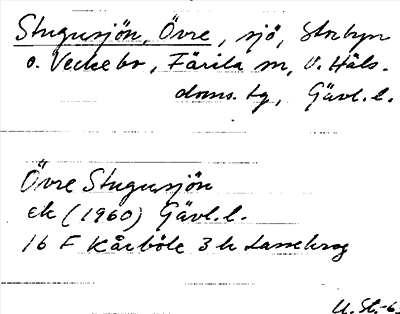 Stugusjön, Övre, sjö, Storbyn
o. Veckebo, Färila sn, V. Häls.
doms. tg, Gävl. l.
Övre Stugusjön
ek (1960) Gävl. l.
16 F Kårböle 3 h Lassekrog
U. St. -6